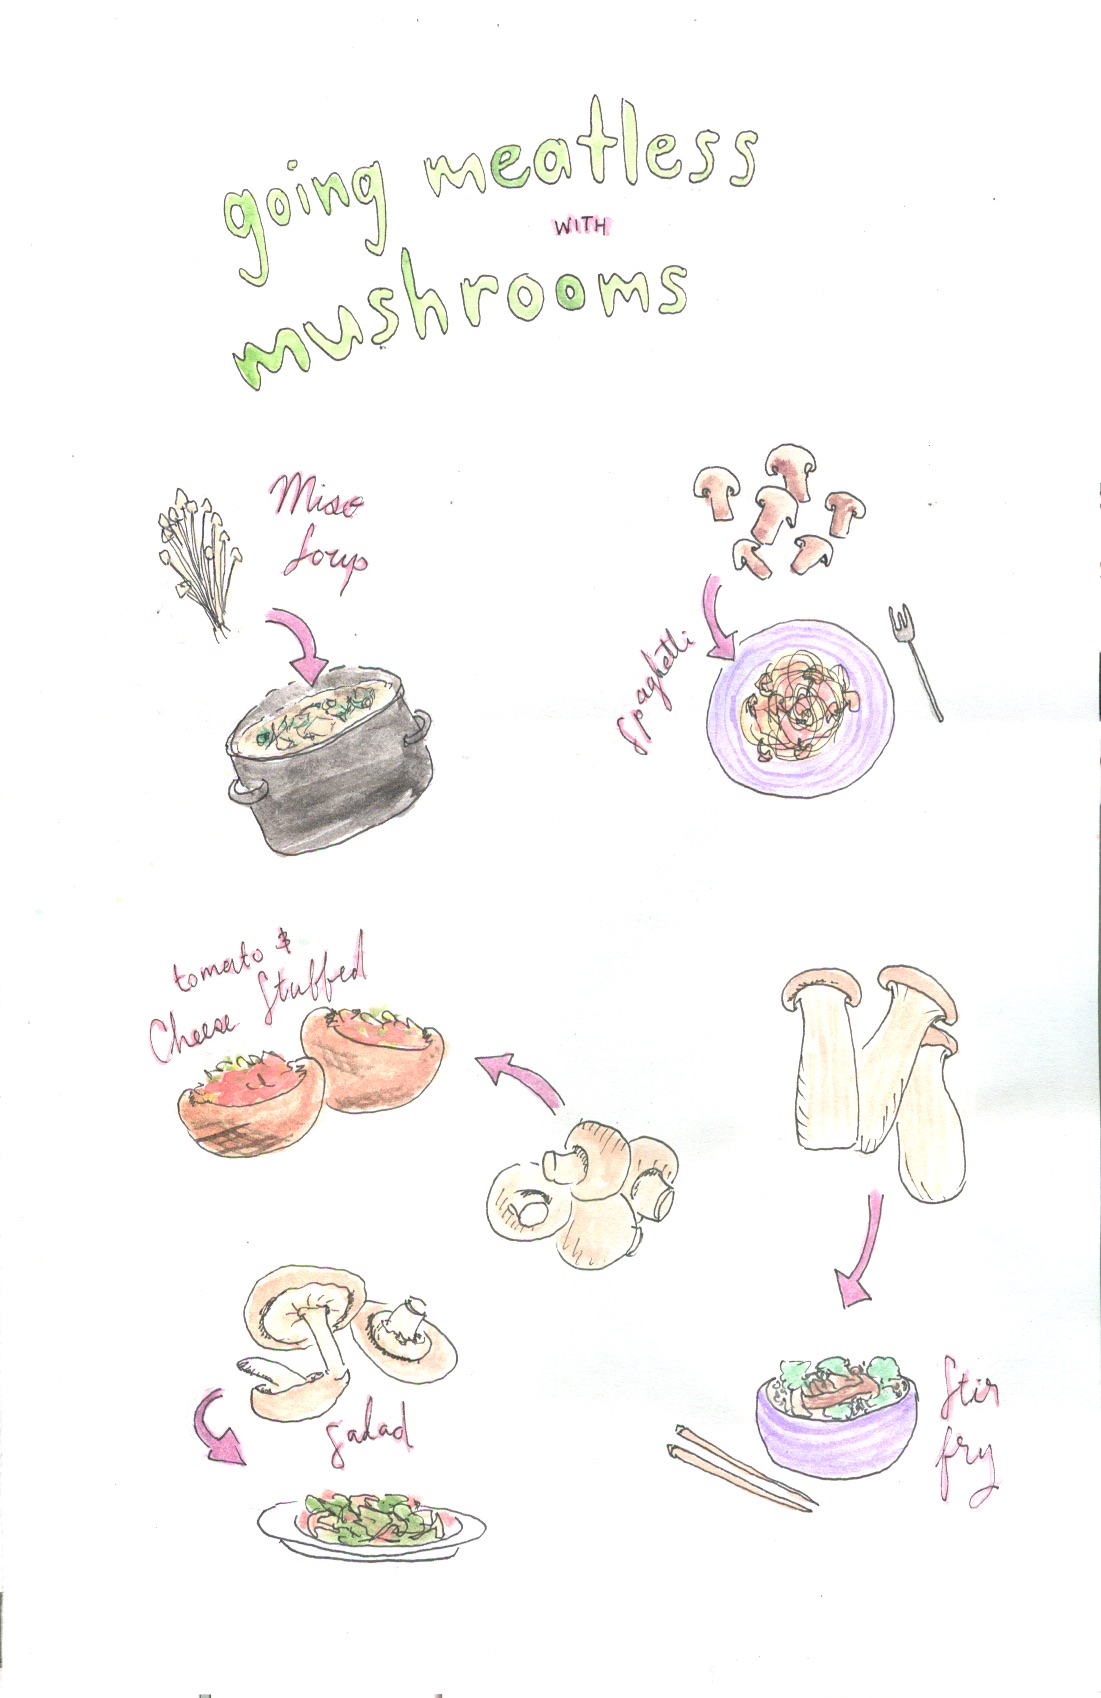 going meatless
WITH
mushrooms
Miso
Soup
Spaghetti
tomato &
Cheese Stuffed
Salad
Stir
fry